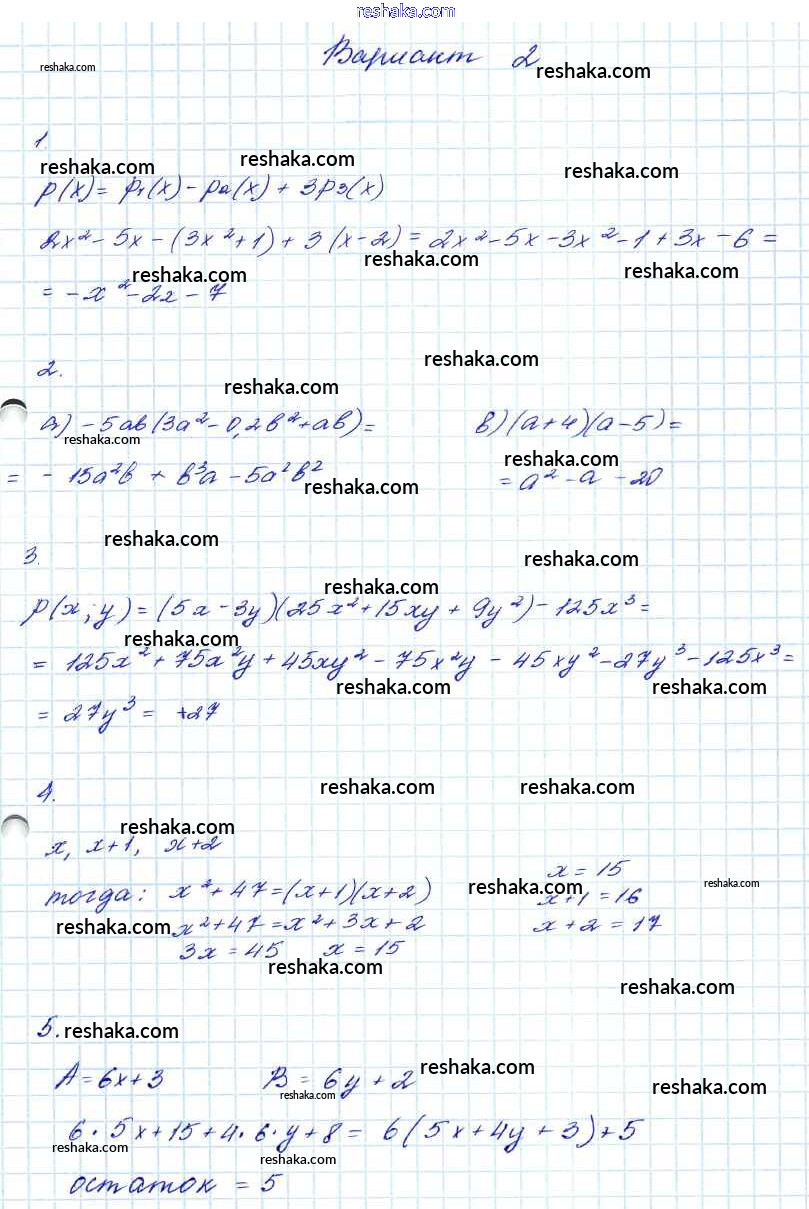 reshaka.com
Вариант 2
reshaka.com reshaka.com
reshaka.com
1.
reshaka.com reshaka.com reshaka.com
p(x) = p₁(x) - p₂(x) + 3p₃(x)
2x² - 5x - (3x² + 1) + 3(x - 2) = 2x² - 5x - 3x² - 1 + 3x - 6 =
reshaka.com reshaka.com reshaka.com
= - x² - 2x - 7
2. reshaka.com
reshaka.com
а) - 5ab(3a² - 0,2b² + ab) = в) (a + 4)(a - 5) =
reshaka.com reshaka.com
= - 15a²b + b³a - 5a²b² = a² - a - 20
reshaka.com
3. reshaka.com reshaka.com
reshaka.com
p(x; y) = (5x - 3y)(25x² + 15xy + 9y²) - 125x³ =
reshaka.com
= 125x² + 75x²y + 45xy² - 75x²y - 45xy² - 27y³ - 125x³ =
reshaka.com reshaka.com
= 27y³ = +27
4. reshaka.com reshaka.com
reshaka.com
x, x+1, x+2
x = 15
тогда: x² + 47 = (x+1)(x+2) x+1 = 16
reshaka.com reshaka.com
reshaka.com x² + 47 = x² + 3x + 2 x + 2 = 17
3x = 45 x = 15
reshaka.com
reshaka.com
5. reshaka.com
A = 6x + 3 B = 6y + 2 reshaka.com
reshaka.com reshaka.com
6 · 5x + 15 + 4 · 6 · y + 8 = 6(5x + 4y + 3) + 5
reshaka.com reshaka.com
остаток = 5